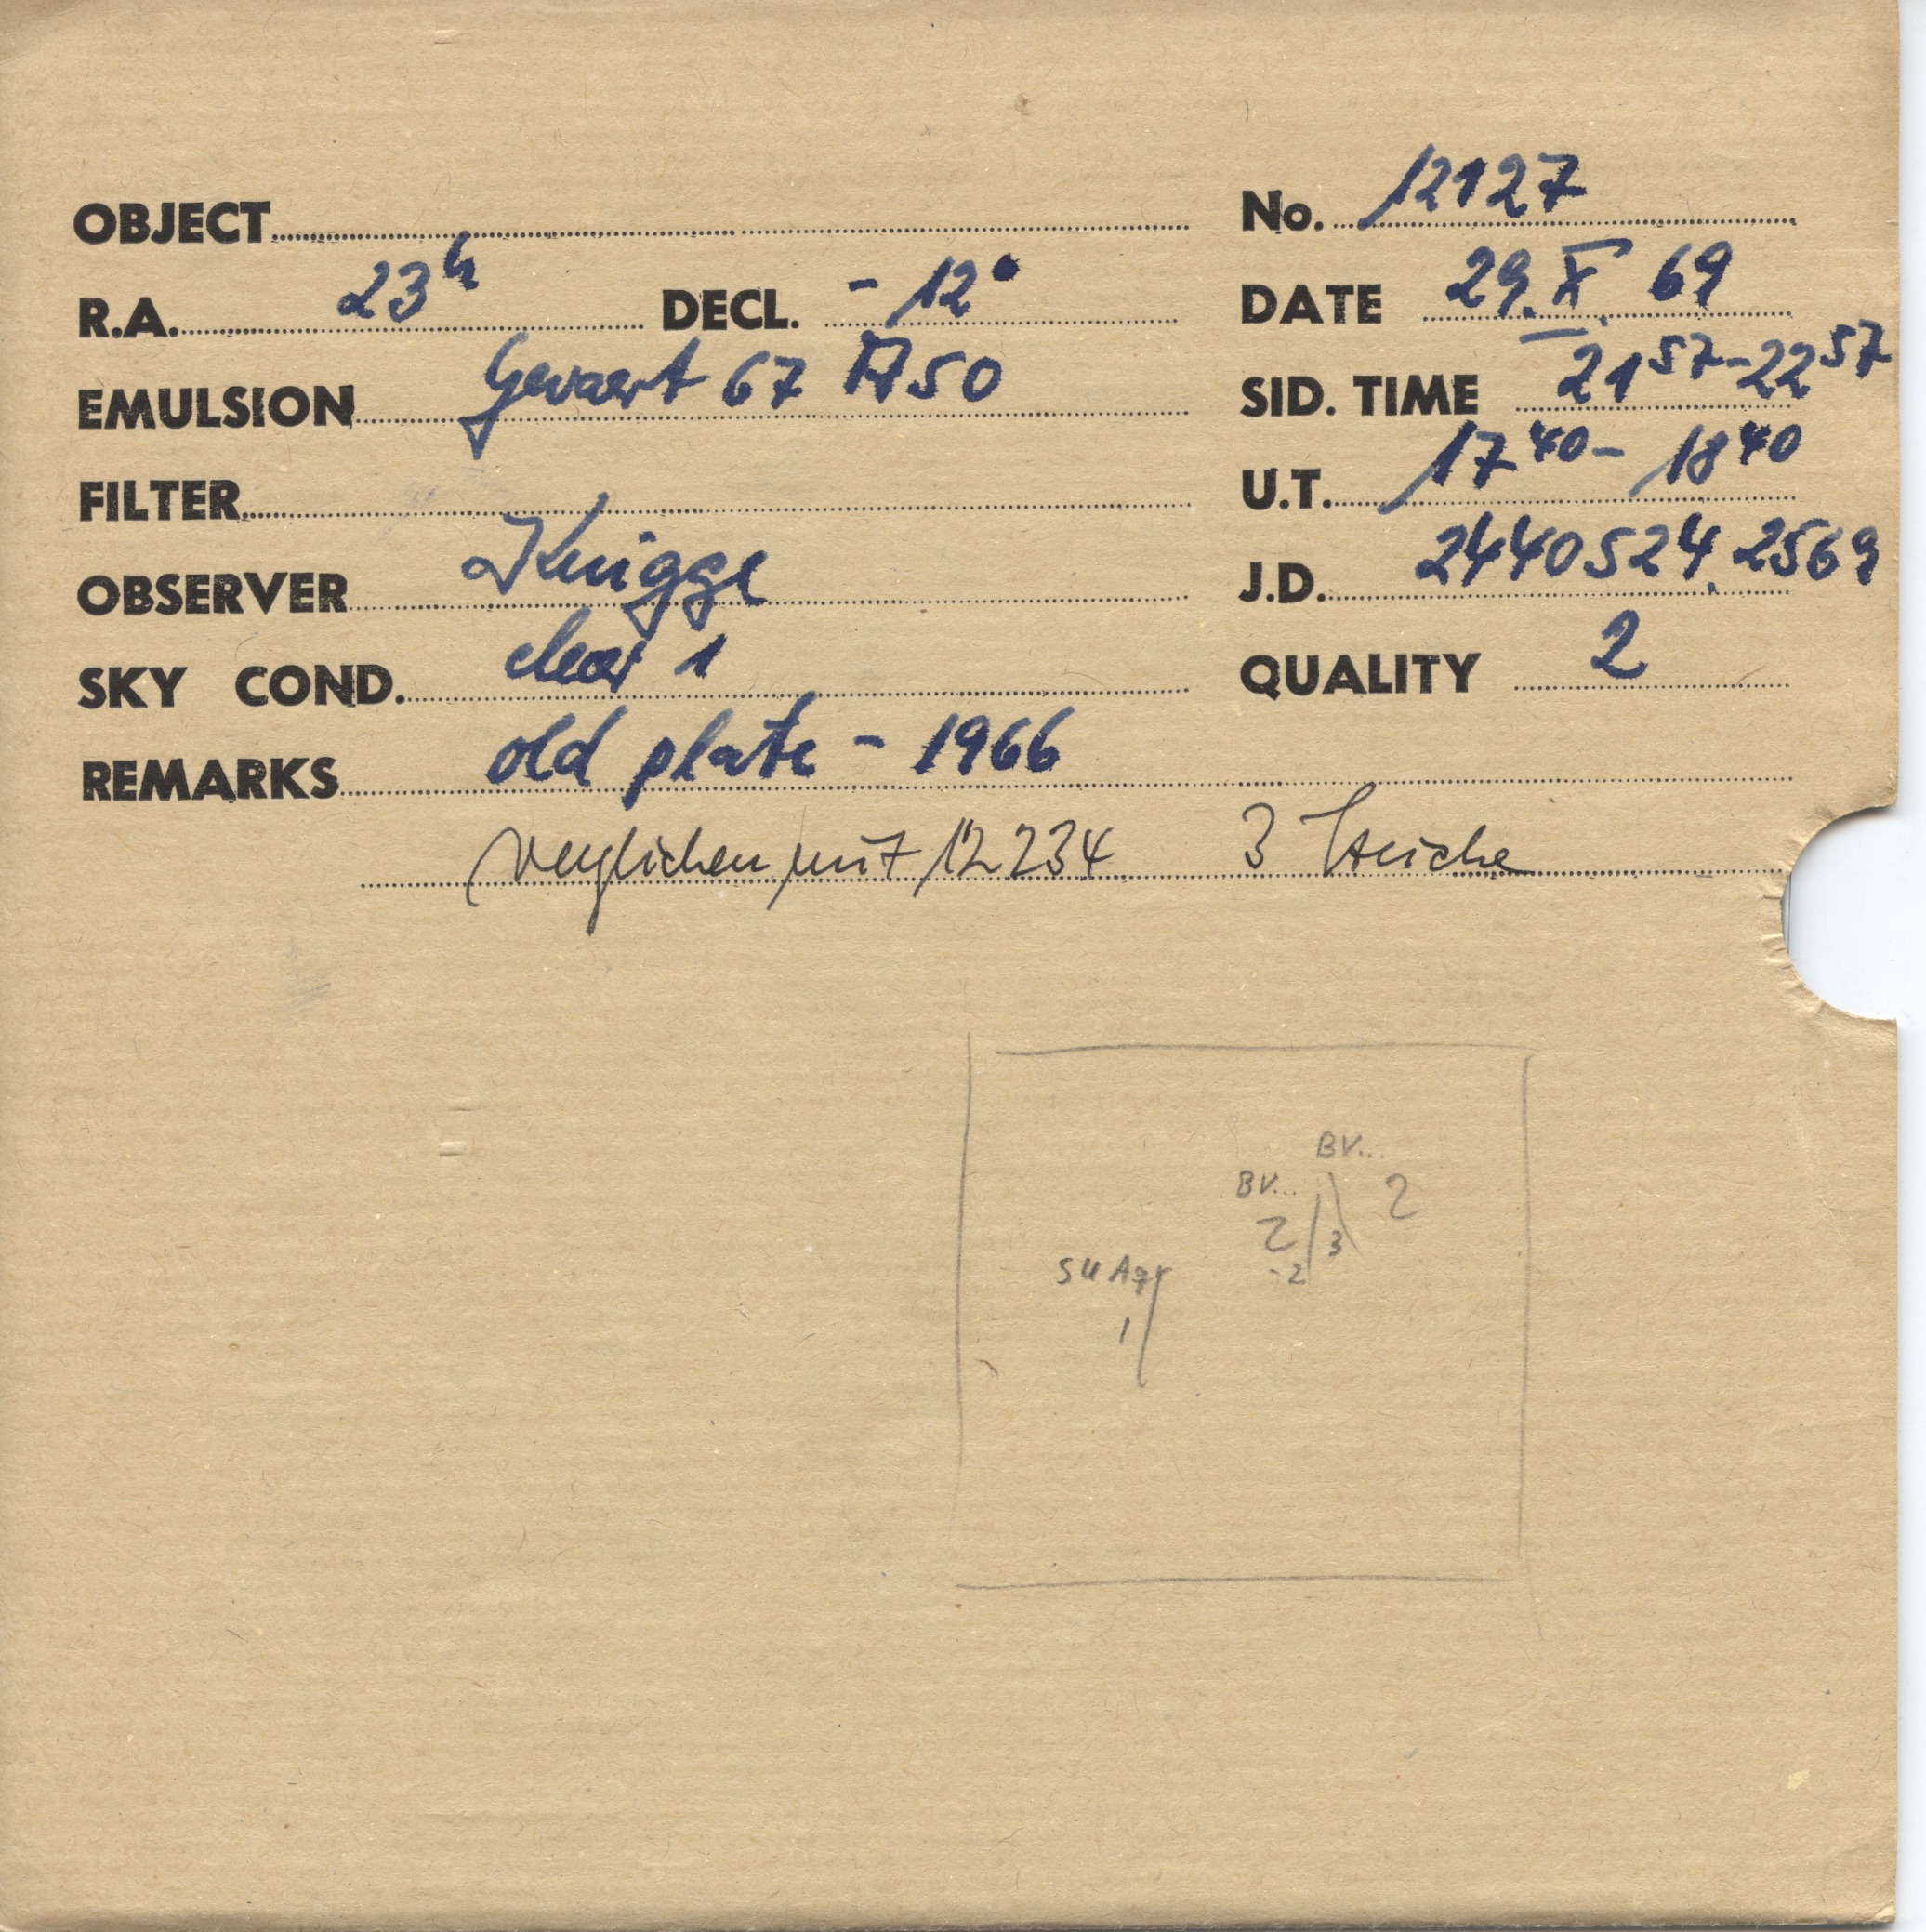 OBJECT No. 12127
R.A. 23h DECL. -12° DATE 29. X. 69
EMULSION Gevaert 67 A50 SID. TIME 21 57 - 22 57
FILTER U.T. 17 40 - 18 40
OBSERVER Knigge J.D. 2440524.2569
SKY COND. clear 1 QUALITY 2
REMARKS old plate - 1966
verglichen mit 12234 3 Striche
BV...
BV... 2
2 3
-2
SU Aqr
1